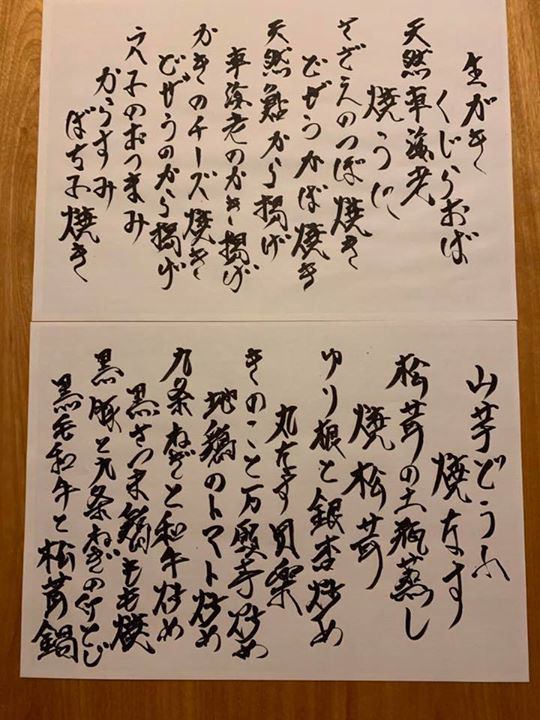 生がき
くじらおば
天然車海老
焼うに
さざえのつぼ焼き
どぜうかば焼き
天然鮎から揚げ
車海老のかき揚げ
かきのチーズ焼き
どぜうのから揚げ
穴子のおつまみ
からすみ
ばちこ焼き
山芋どうふ
焼なす
松茸の土瓶蒸し
焼松茸
ゆり根と銀杏炒め
丸なす田楽
きのこと万願寺炒め
地鶏のトマト炒め
九条ねぎと和牛炒め
黒さつま鶏もも焼
黒豚と九条ねぎの卵とじ
黒毛和牛と松茸鍋